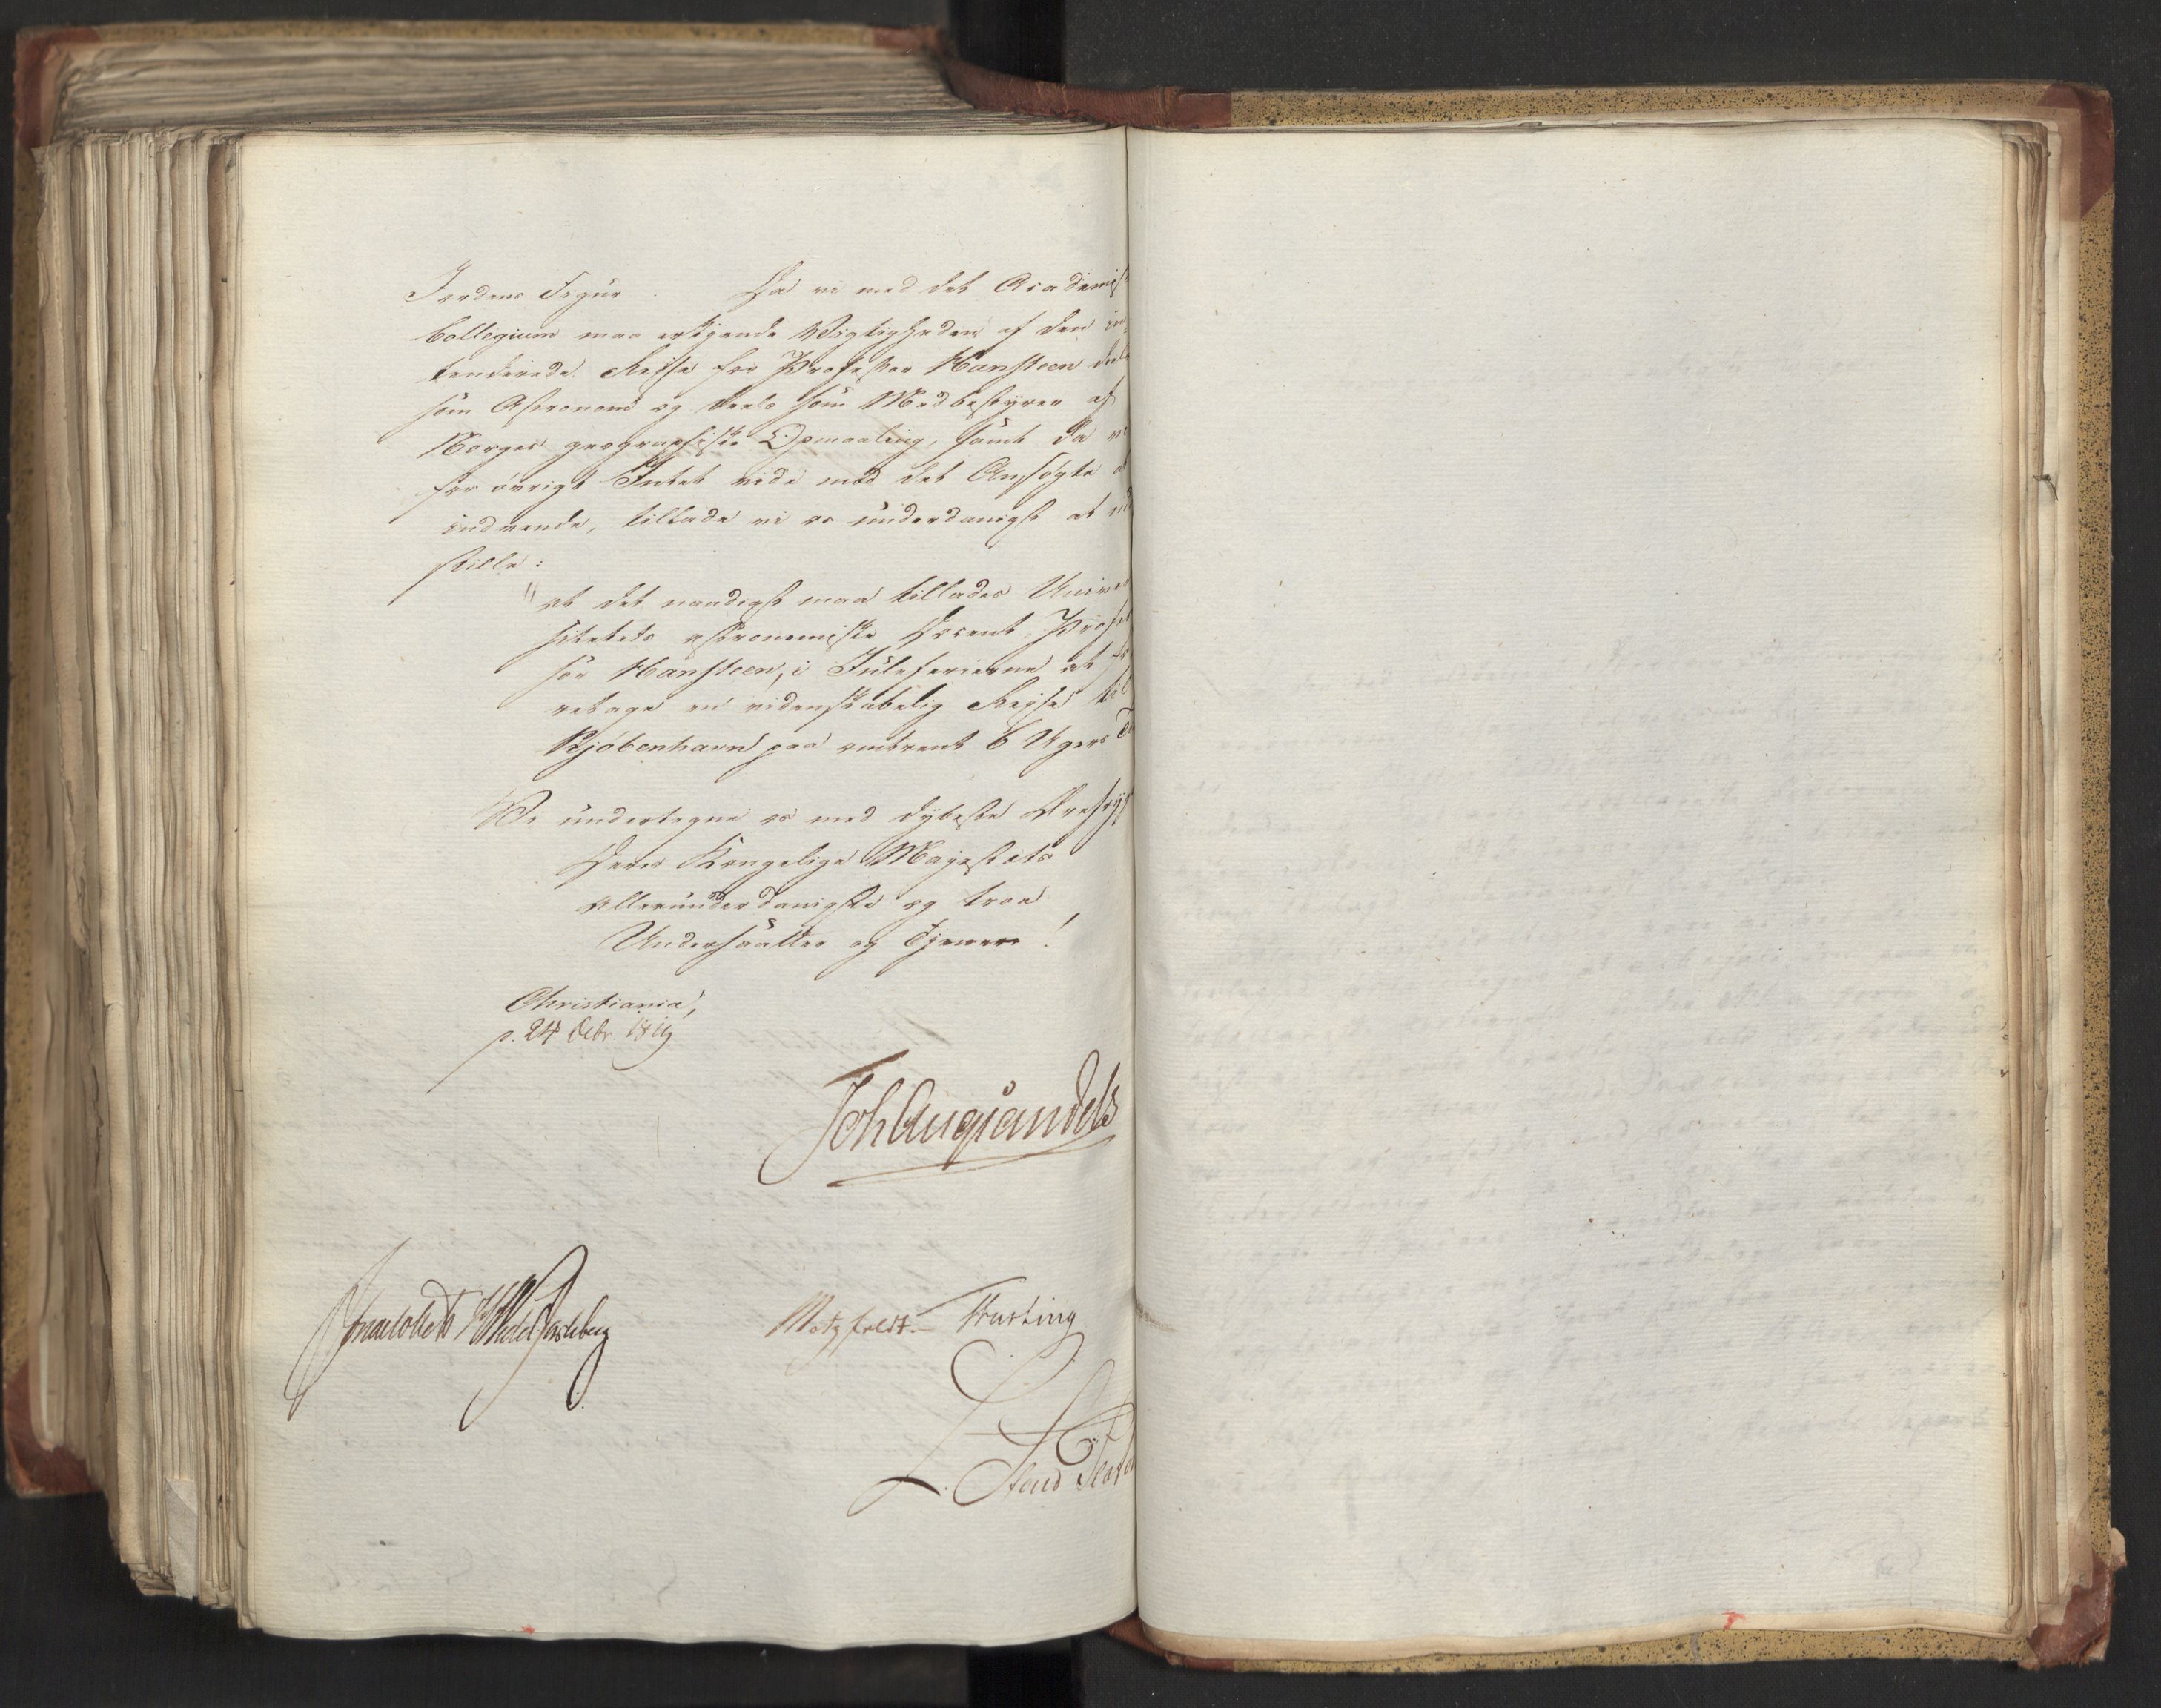 Jordens Figur. Da vi med det Academiske
Collegium maa erkjende Vigtigheden af den in
tenderede Rejse for Professor Hansteen deels
som Astronom og deels som Medbestyrer af
Norges geographiske Opmaaling, samt da vi
for øvrigt Intet vide mod det Ansøgte at
indvende, tillade vi os underdanigst at ind
stille:
"at det naadigst maa tillades Univer
sitetets astronomiske Docent, Profes
sor Hansteen, i Juleferierne at fo
retage en videnskabelig Rejse til
Kjöbenhavn paa omtrent 6 Ugers Tid
Vi undertegne os med dybeste Ærefrygt
Deres Kongelige Majestæts
allerunderdanigste og troe
Undersaatter og Tjenere!
Christiania,
p. 24 Octbr. 1819
Joh Aug Sandels
HWedel Jarlsberg
Motzfeldt. Krafting